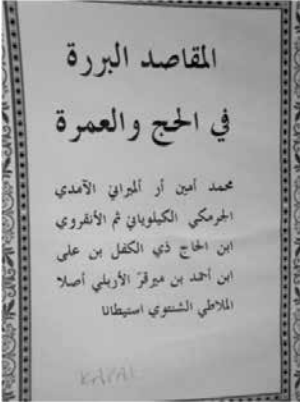 المقاصد البررة
في الحج والعمرة
محمد أمين أر الميراني الآمدي
الجرمكي الكيلوياني ثم الأنقروي
ابن الحاج ذي الكفل بن على
ابن أحمد بن ميرقز الأربلي أصلا
الملاطي الشنتوي استيطانا
KAPAI